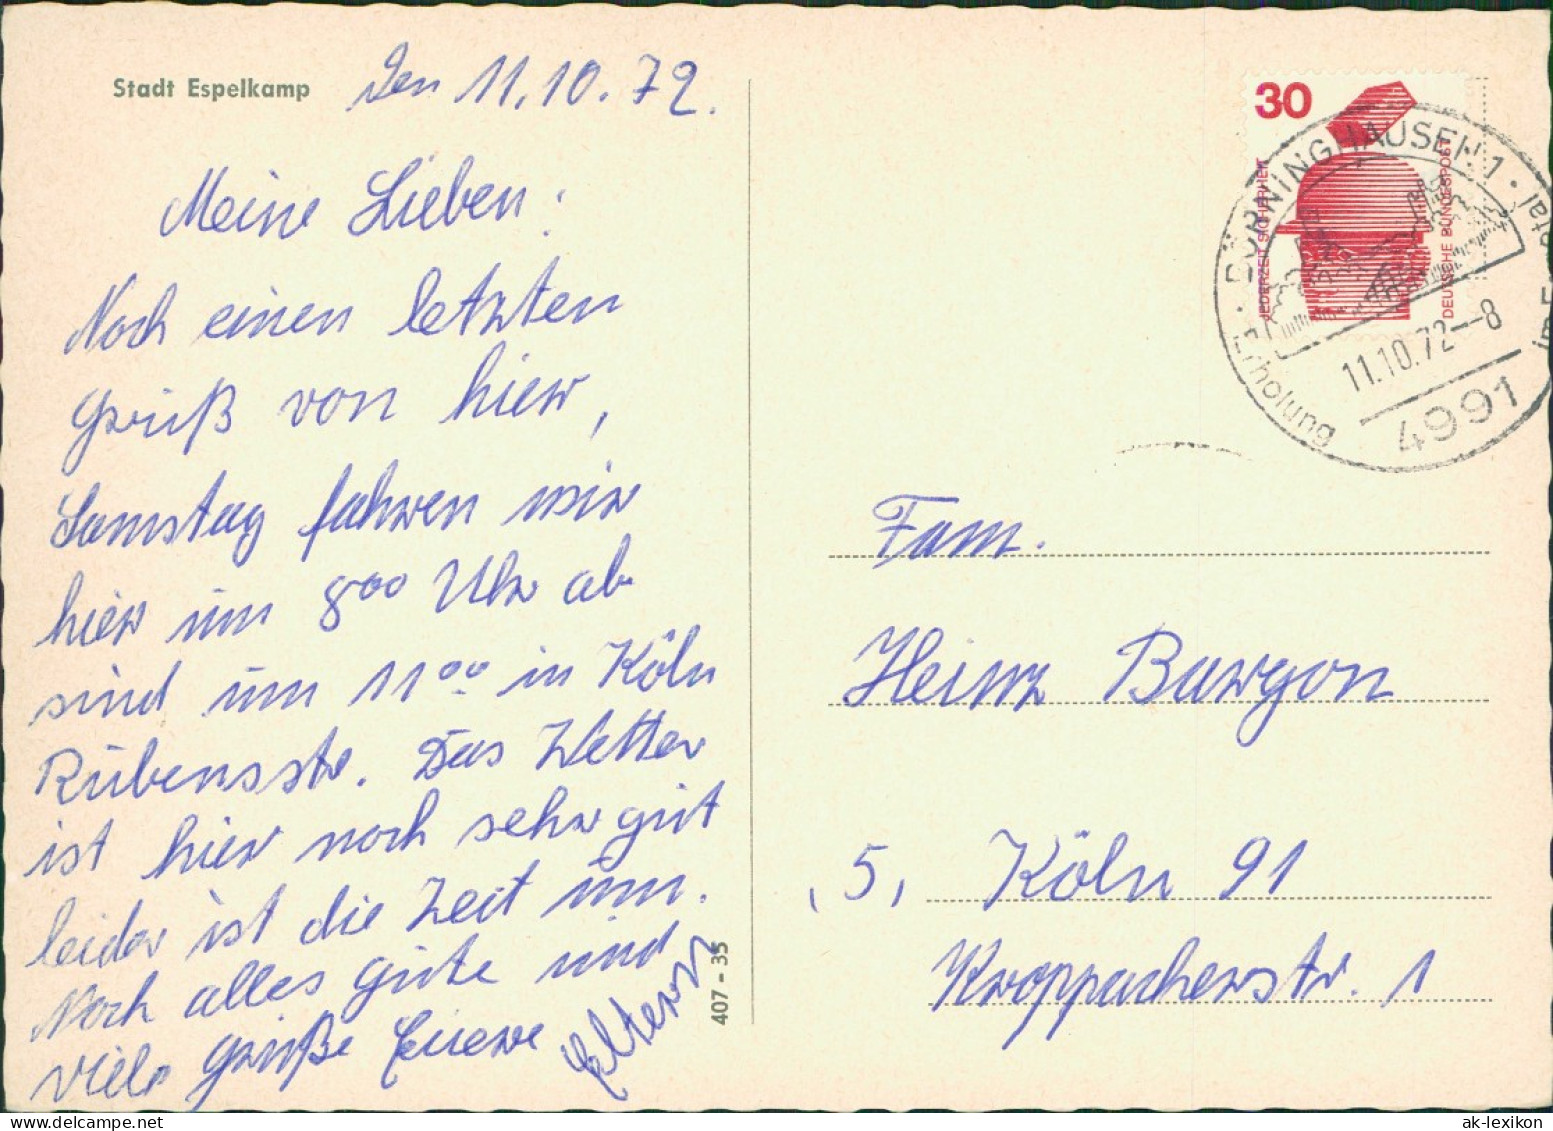 Stadt Espelkamp
Den 11.10.72.
Meine Lieben:
Noch einen letzten
Gruß von hier,
Samstag fahren wir
hier um 8⁰⁰ Uhr ab
sind um 11⁰⁰ in Köln
Rubensstr. Das Wetter
ist hier noch sehr gut
leider ist die Zeit um.
Noch alles gute und
viele Grüße Euere Eltern
407 - 35
30
JEDERZEIT SICHERHEIT
DEUTSCHE BUNDESPOST
BÖRNINGHAUSEN 1
Erholung
11.10.72--8
4991
Fam.
Heinz Burgon
5, Köln 91
Kroppacherstr. 1
ak-lexikon